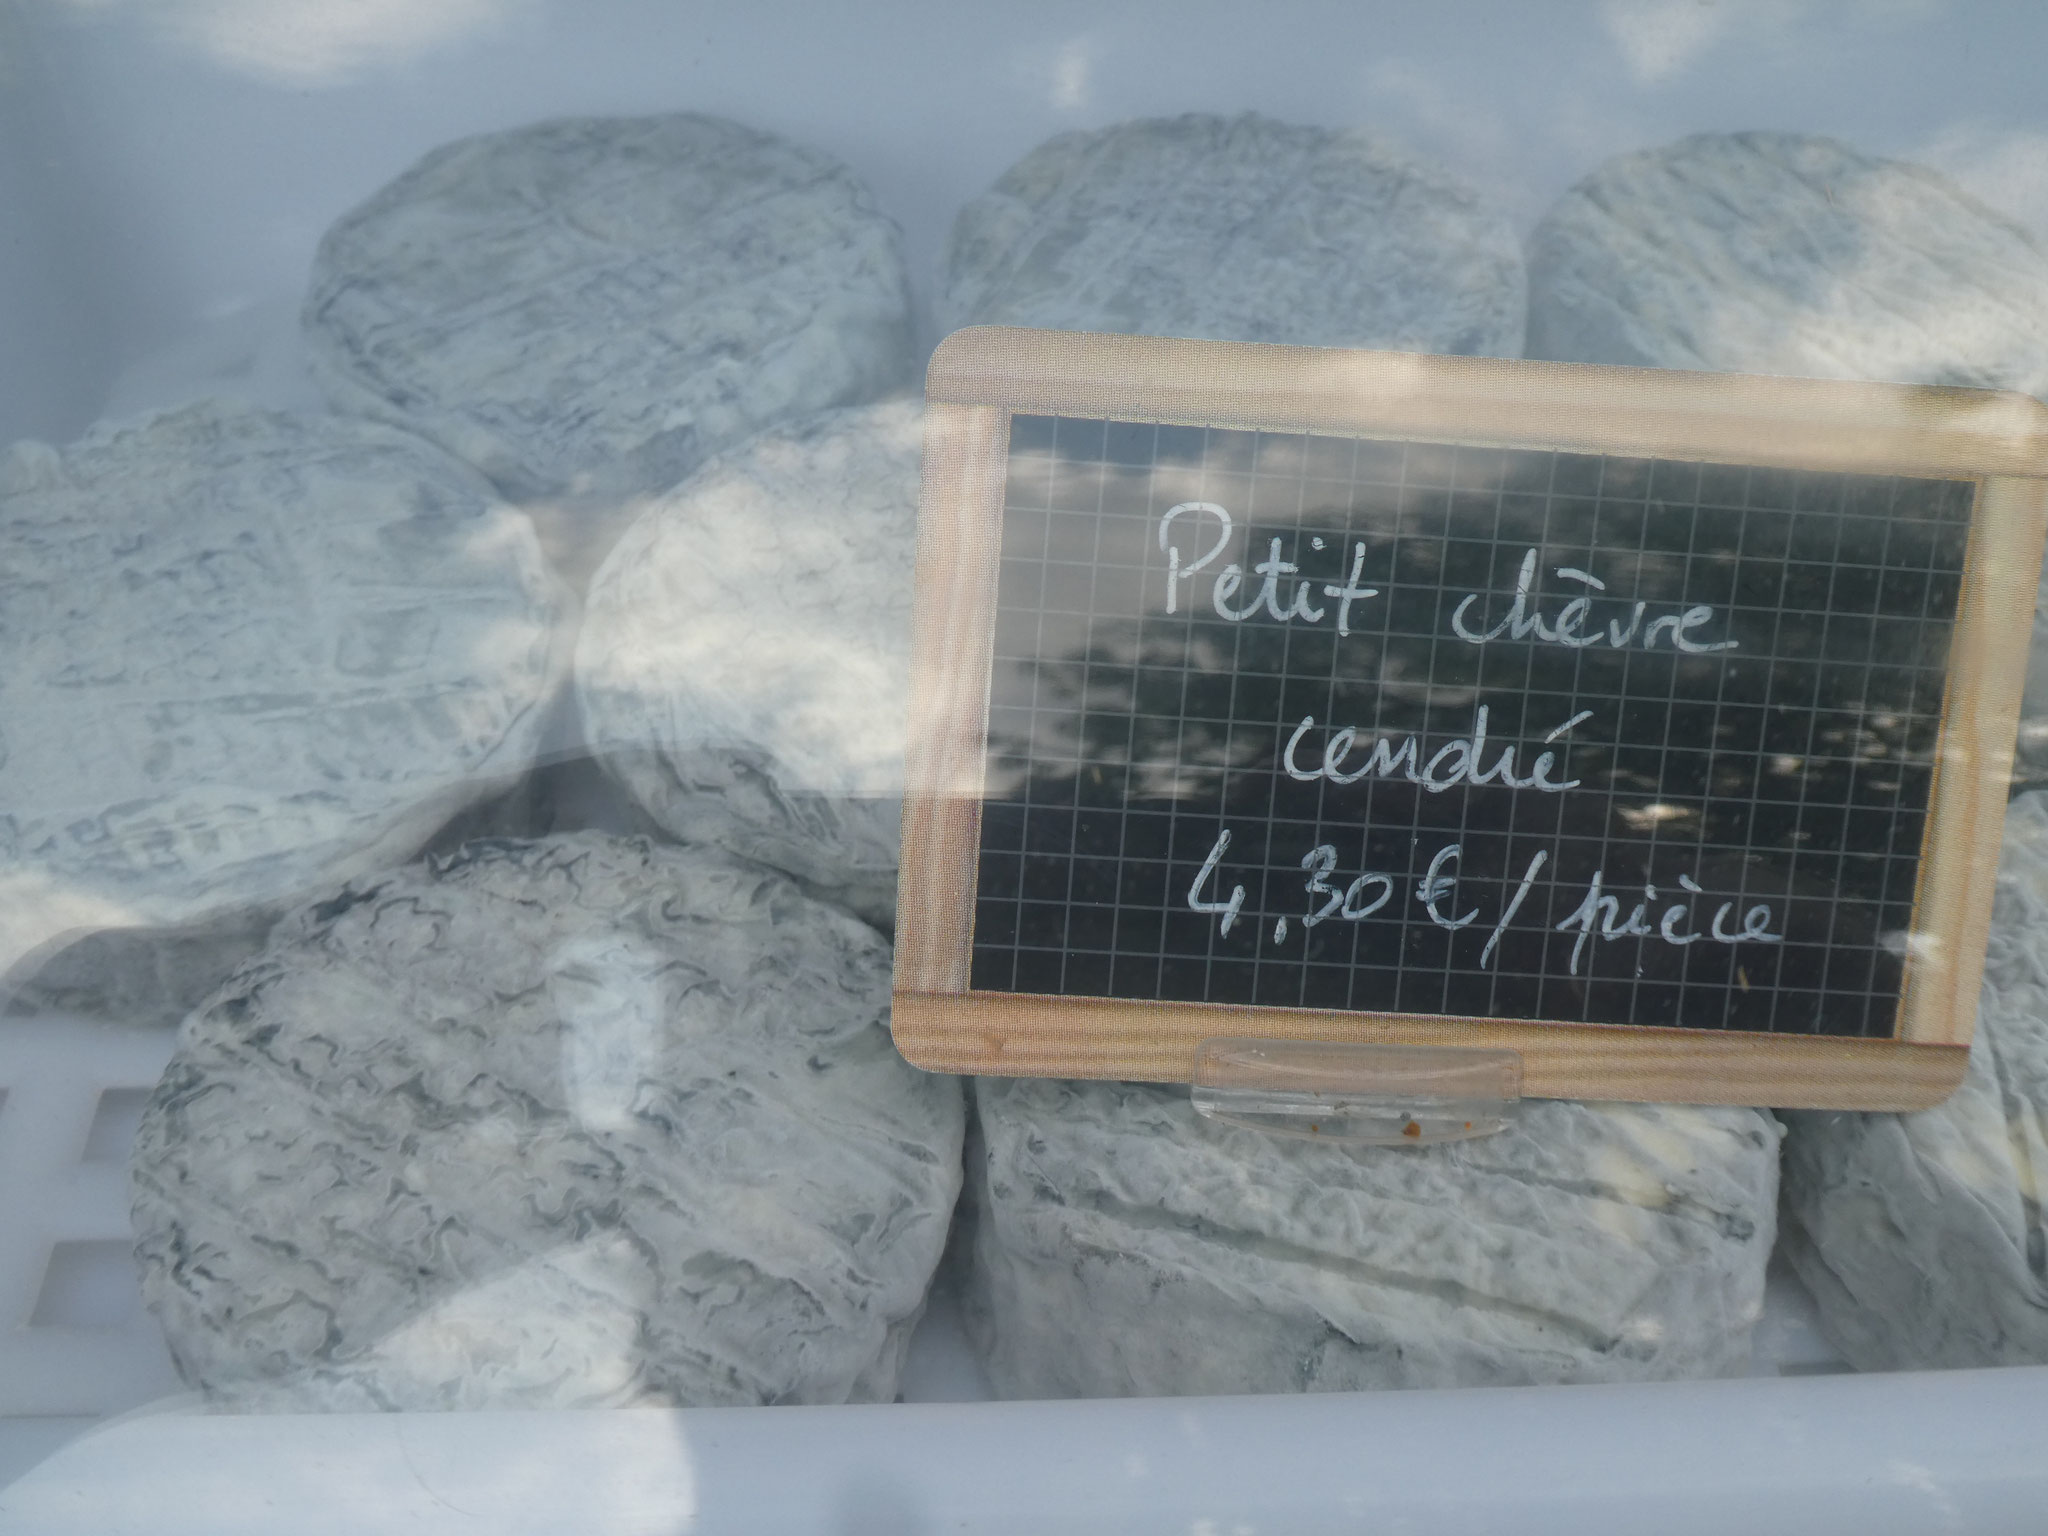 Petit chèvre
cendré
4,30€/pièce